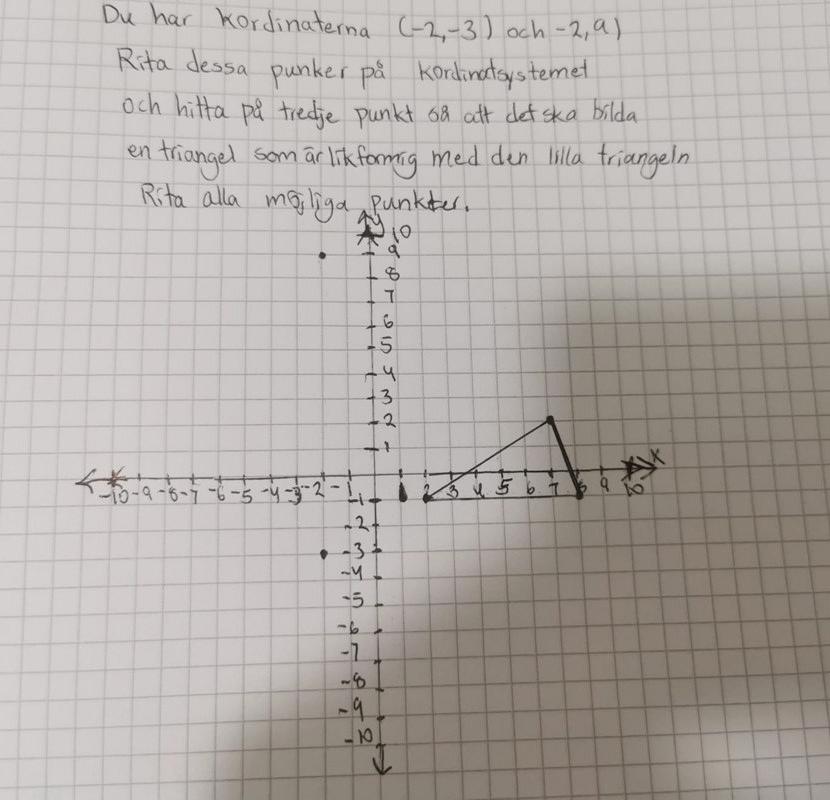 Du har kordinaterna (-2,-3) och -2,9)
Rita dessa punker på kordinatsystemet
och hitta på tredje punkt så att det ska bilda
en triangel som är likformig med den lilla triangeln
Rita alla möjliga punkter.
y
10
9
8
7
6
5
4
3
2
1
x
-10 -9 -8 -7 -6 -5 -4 -3 -2 -1 2 3 4 5 6 7 8 9 10
-1
-2
-3
-4
-5
-6
-7
-8
-9
-10